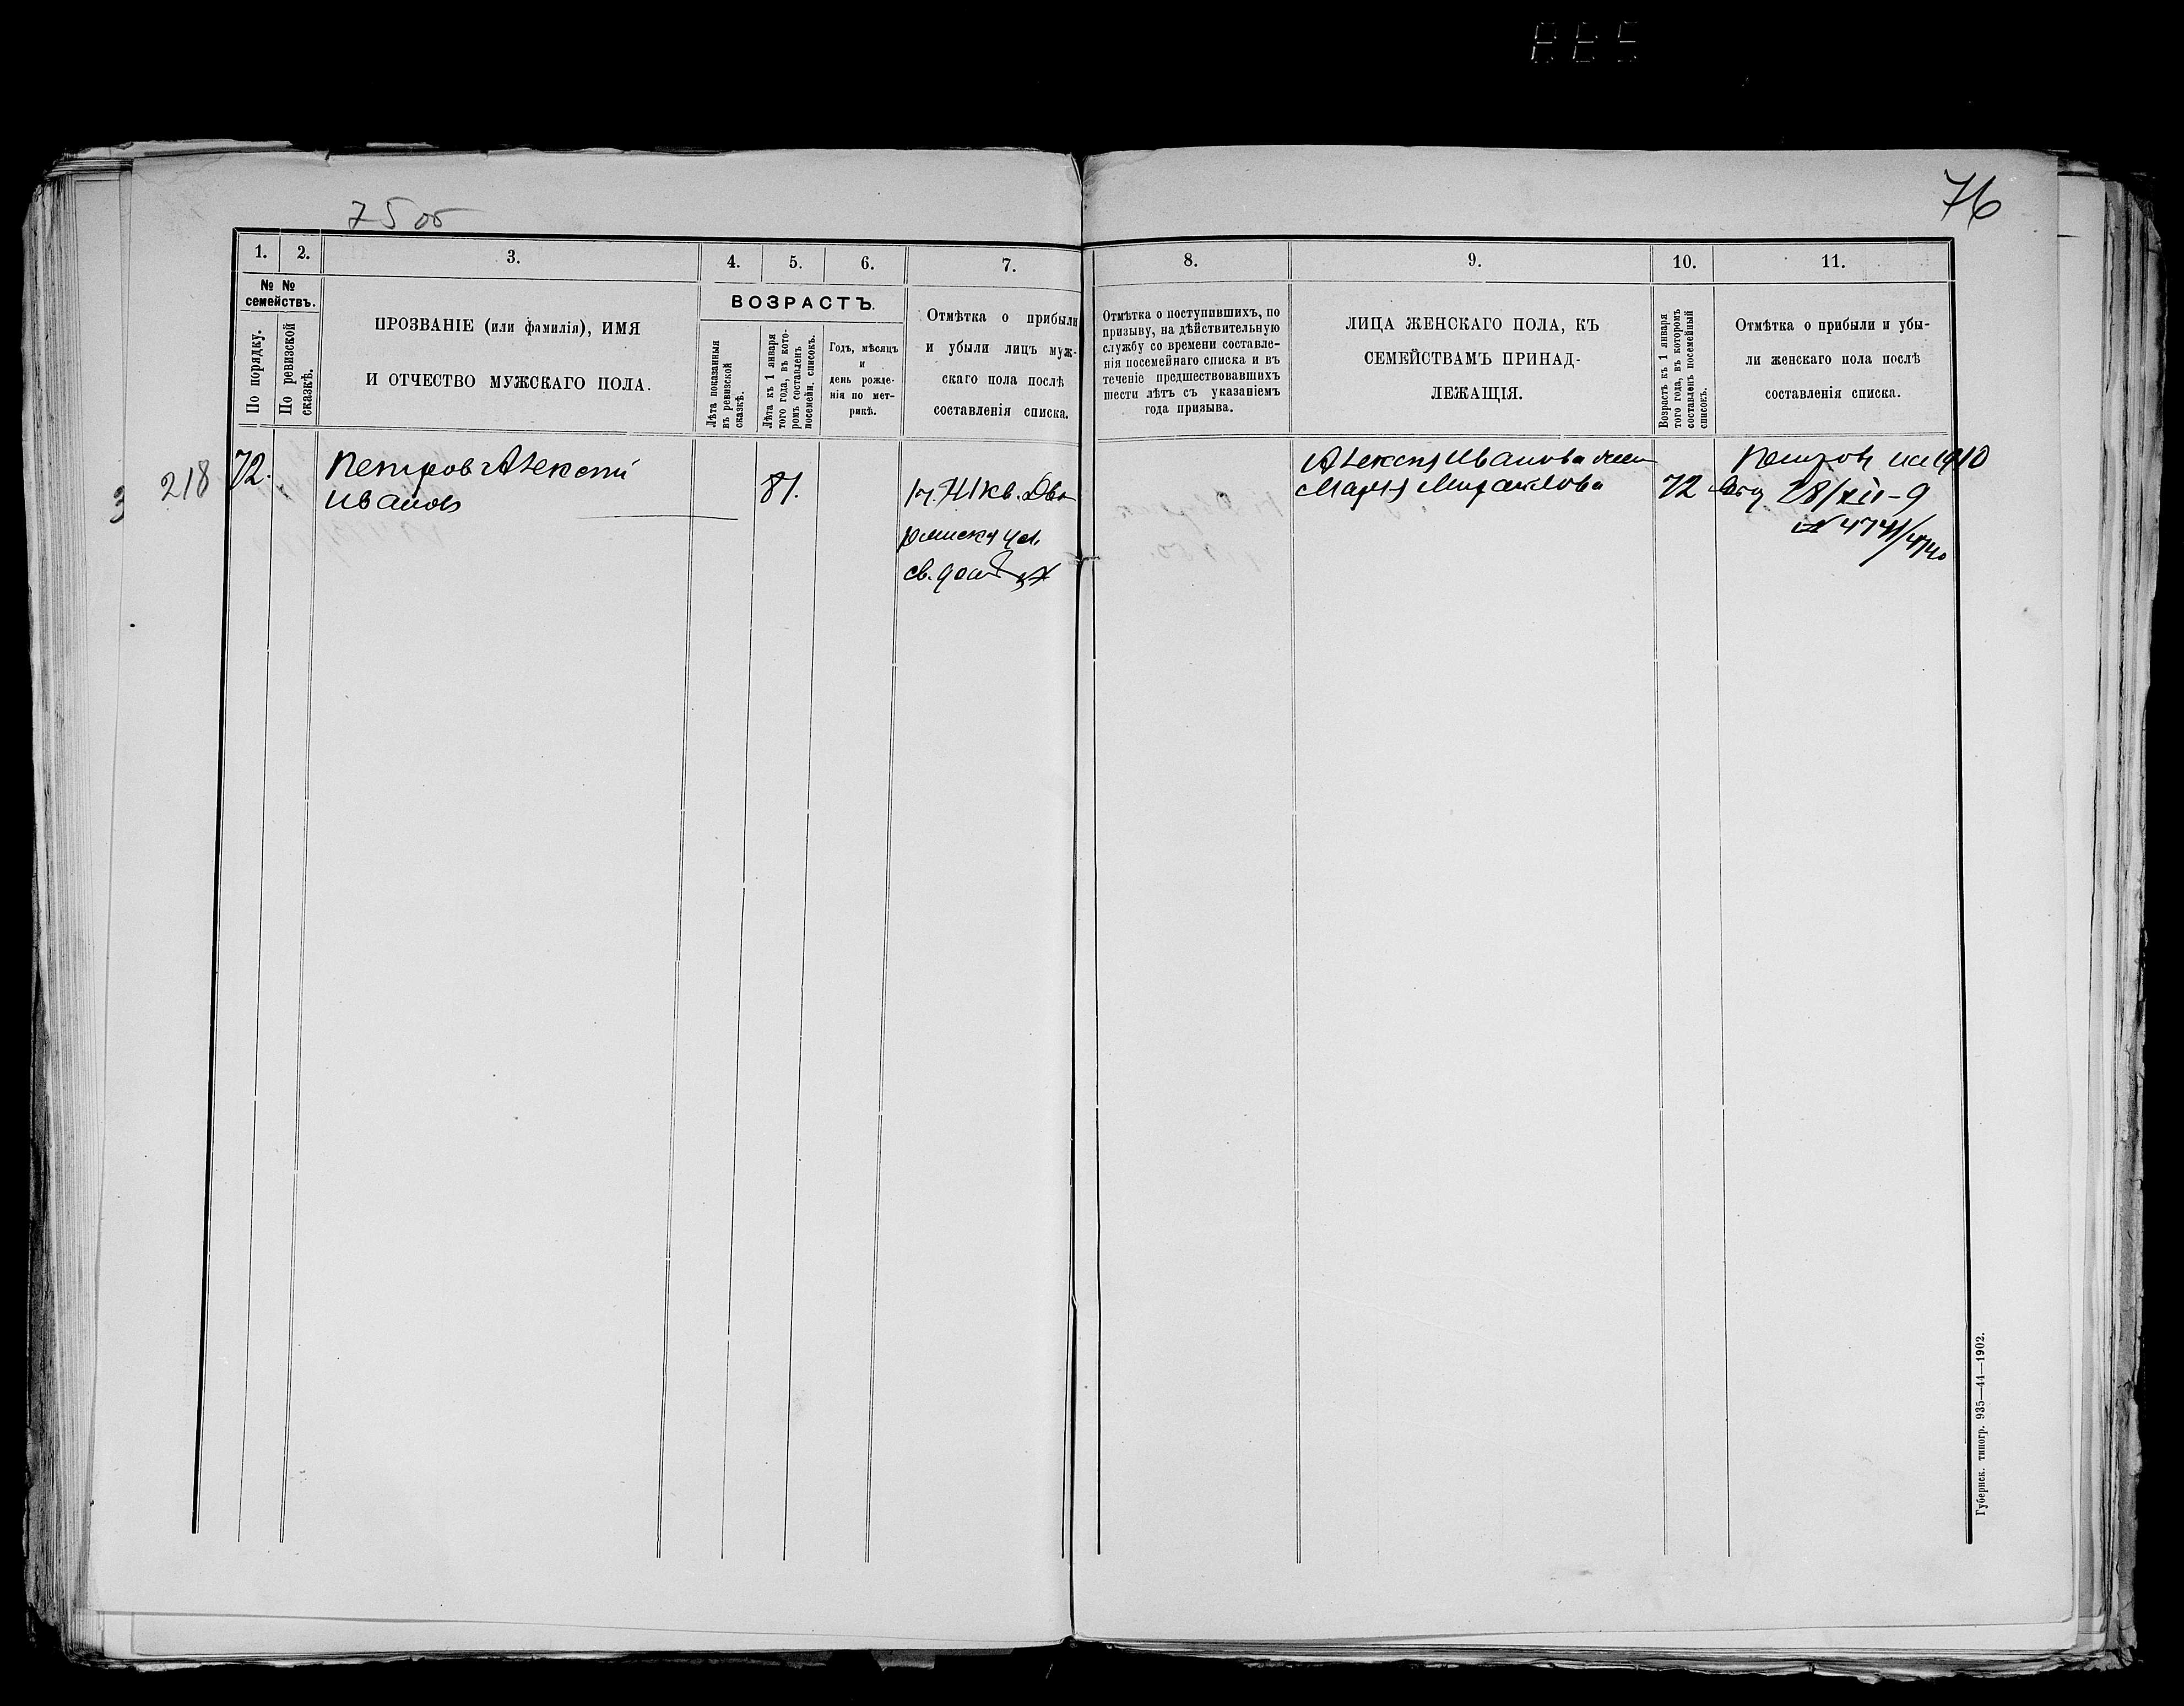 75 об
76
1. 2. 3. 4. 5. 6. 7. 8. 9. 10. 11.
№ №
семействъ.
По порядку.
По ревизской
сказкѣ.
ПРОЗВАНІЕ (или фамилія), ИМЯ
И ОТЧЕСТВО МУЖСКАГО ПОЛА.
ВОЗРАСТЪ.
Лѣта показанныя
въ ревизской
сказкѣ.
Лѣта къ 1 января
того года, въ кото-
ромъ составленъ
посемейн. списокъ.
Годъ, мѣсяцъ
и
день рожде-
нія по мет-
рикѣ.
Отмѣтка о прибыли
и убыли лицъ муж-
скаго пола послѣ
составленія списка.
Отмѣтка о поступившихъ, по
призыву, на дѣйствительную
службу со времени составле-
нія посемейнаго списка и въ
теченіе предшествовавшихъ
шести лѣтъ съ указаніемъ
года призыва.
ЛИЦА ЖЕНСКАГО ПОЛА, КЪ
СЕМЕЙСТВАМЪ ПРИНАД-
ЛЕЖАЩІЯ.
Возрастъ къ 1 января
того года, въ которомъ
составленъ посемейный
списокъ.
Отмѣтка о прибыли и убы-
ли женскаго пола послѣ
составленія списка.
218
72.
Петров Алексѣй
Иванов
81.
кв. Дво
св.
Алексѣя Иванова жена
Марья Михайлова
72
на 1910
28/XII-9
№ 4741/4740
Губернск. типогр. 935—44—1902.